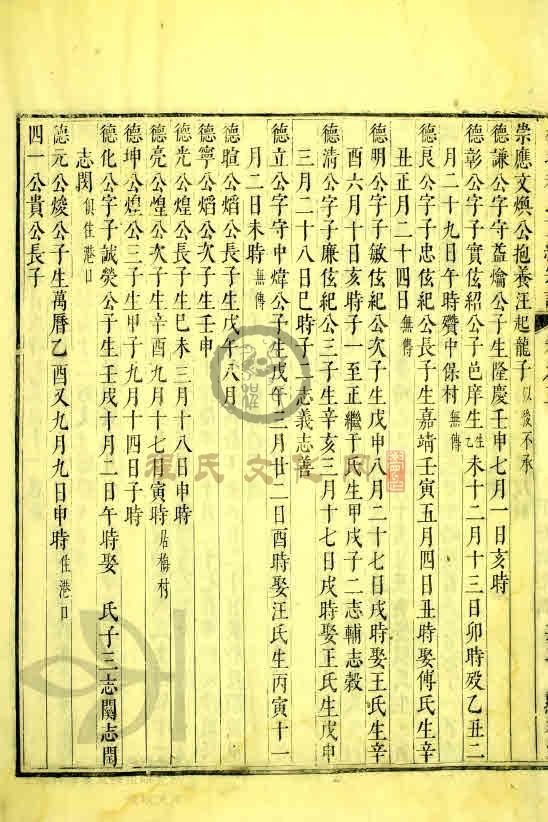 崇應文煥公抱養汪起龍子 似發不承
德謙公字守蓋爚公子生隆慶壬申七月一日亥時
德彰公字子實伭紹公子邑庠生生乙未十二月十三日卯時歿乙丑二
月二十九日午時殯中保村 無傳
德良公字子忠伭紀公長子生嘉靖壬寅五月四日丑時娶傅氏生辛
丑正月二十四日 無傳
德明公字子敏伭紀公次子生戊申八月二十七日戌時娶王氏生辛
酉六月十日亥時子一至正繼于氏生甲戌子二志輔志穀
德清公字子廉伭紀公三子生辛亥三月十七日戌時娶王氏生戊申
三月二十八日巳時子二志義志善
德立公字守中煒公子生戊午三月廿二日酉時娶汪氏生丙寅十一
月二日未時 無傳
德暄公熖公長子生戊午八月
德寧公熖公次子生壬申
德光公煌公長子生巳未三月十八日申時
德亮公煌公次子生辛酉九月十七日寅時 居梅村
德坤公煌公三子生甲子九月十四日子時
德化公字子誠熒公子生壬戌十月二日午時娶 氏子三志閫志閏
志閔 俱住港口
德元公焌公子生萬曆乙酉又九月九日申時 住港口
四一公貴公長子
張氏文化网